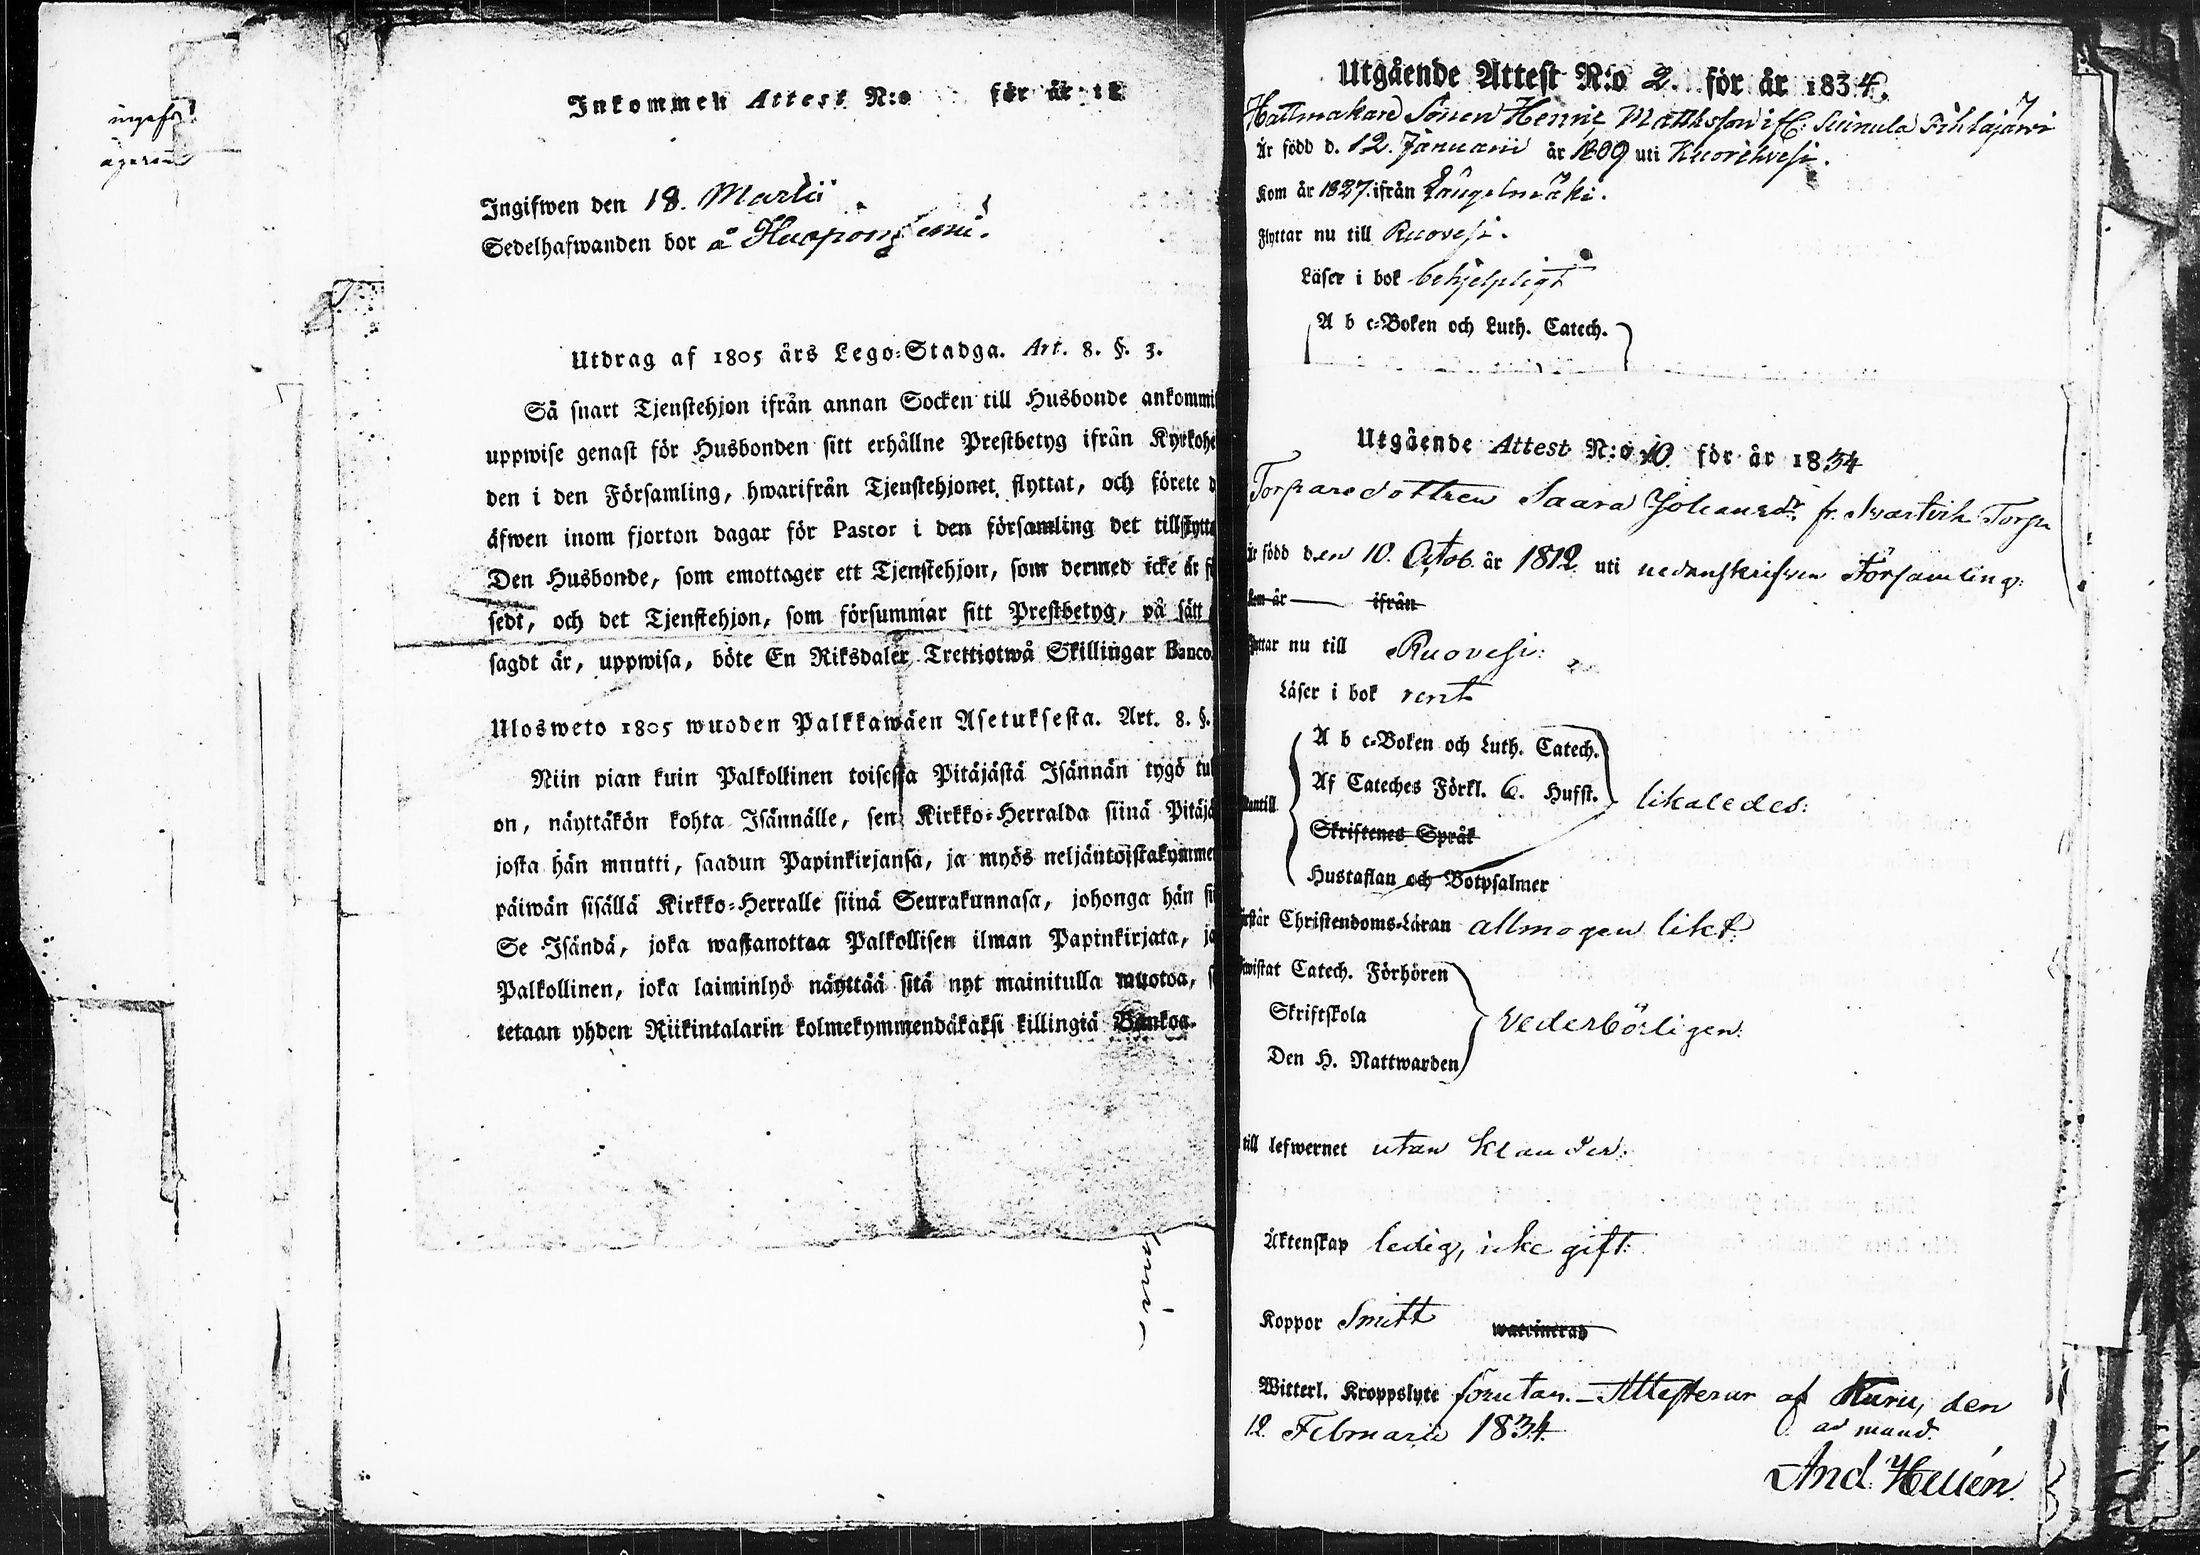 ingifwi
ägaren
Inkommen Attest N:o för år 18
Ingifwen den 18. Martii
Sedelhafwanden bor å
Utdrag af 1805 års Lego-Stadga. Art. 8. §. 3.
Så snart Tjenstehjon ifrån annan Socken till Husbonde ankommi
uppwise genast för Husbonden sitt erhållne Prestbetyg ifrån Kyrkohe
den i den Församling, hwarifrån Tjenstehjonet flyttat, och förete d
äfwen inom fjorton dagar för Pastor i den församling det tillflytta
Den Husbonde, som emottager ett Tjenstehjon, som dermed icke är f
sedt, och det Tjenstehjon, som försummar sitt Prestbetyg, på sätt
sagdt är, uppwisa, böte En Riksdaler Trettiotwå Skillingar Banco.
Ulosweto 1805 wuoden Palkkawäen Asetuksesta. Art. 8. §.
Niin pian kuin Palkollinen toisesta Pitäjästä Isännän tygö tul
on, näyttäkön kohta Isännälle, sen Kirkko-Herralda siinä Pitäjä
josta hän muutti, saadun Papinkirjansa, ja myös neljäntoistakymme
päiwän sisällä Kirkko-Herralle siinä Seurakunnasa, johonga hän si
Se Isändä, joka wastanottaa Palkollisen ilman Papinkirjata, ja
Palkollinen, joka laiminlyö näyttää sitä nyt mainitulla muotoa, s
tetaan yhden Riikintalarin kolmekymmendäkaksi killingiä Bankoa.
Utgående Attest N:o 2. för år 1834.
Hattmakare Sonen Henric Matthsson ifr: Suinula Pihlajärvi
Är född d. 12. Januarii år 1809 uti Kuorehvesi.
Kom år 1827. ifrån Längelmäki.
Flyttar nu till Ruovesi.
Läser i bok behjelpligt
A b c-Boken och Luth. Catech.
Utgående Attest N:o 10. för år 1834
Torparedottren Saara Johansdr. fr. Svartvik Torp
är född den 10. Octob. år 1812 uti nedanskrifven Församling:
Kom år ifrån
Flyttar nu till Ruovesi:
Läser i bok rent
A b c-Boken och Luth. Catech.
Af Cateches Förkl. 6. Hufst.
Utantill likaledes:
Skriftenes Språk
Hustaflan och Botpsalmer
Förstår Christendoms-Läran allmogen likt:
Bewistat Catech. Förhören
Skriftskola Vederbörligen:
Den H. Nattwarden
till lefwernet utan klander:
Äktenskap ledig, icke gift:
Koppor Smitt waccinerad
Witterl. Kroppslyte förutan. – Attesterar af Kuru, den
12 Februarii 1834. ad mand.
And. Hellén.